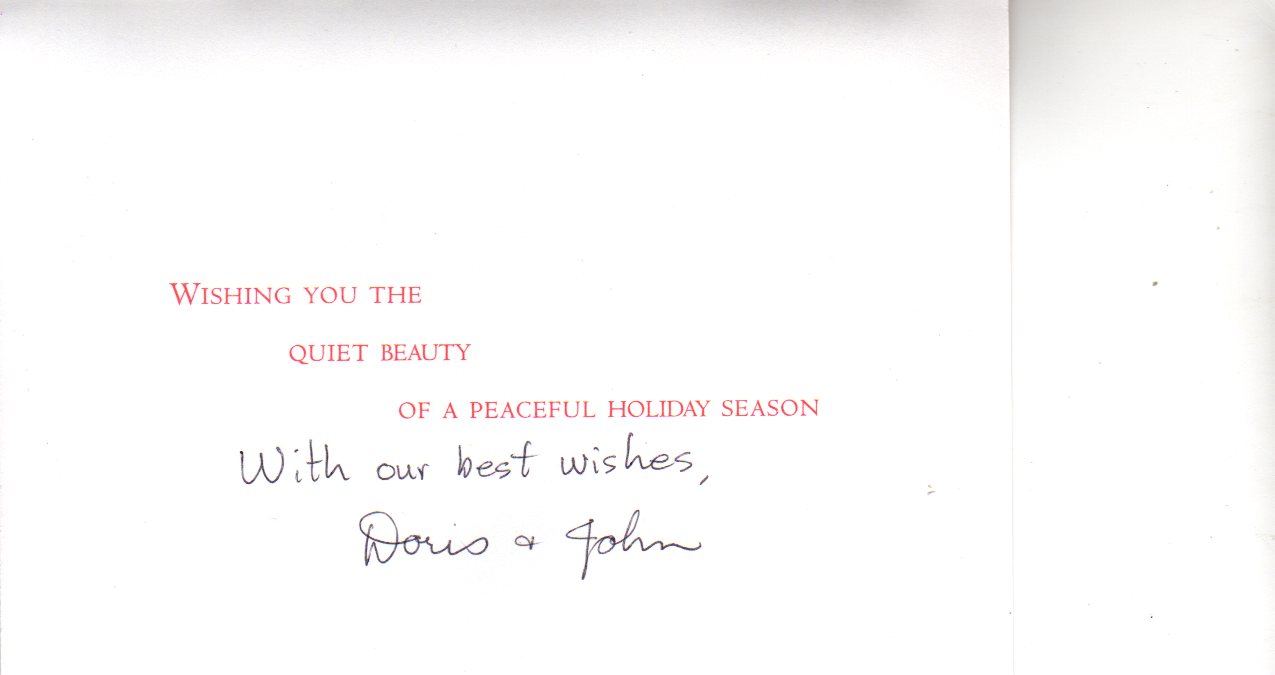 WISHING YOU THE
QUIET BEAUTY
OF A PEACEFUL HOLIDAY SEASON
With our best wishes,
Doris & John